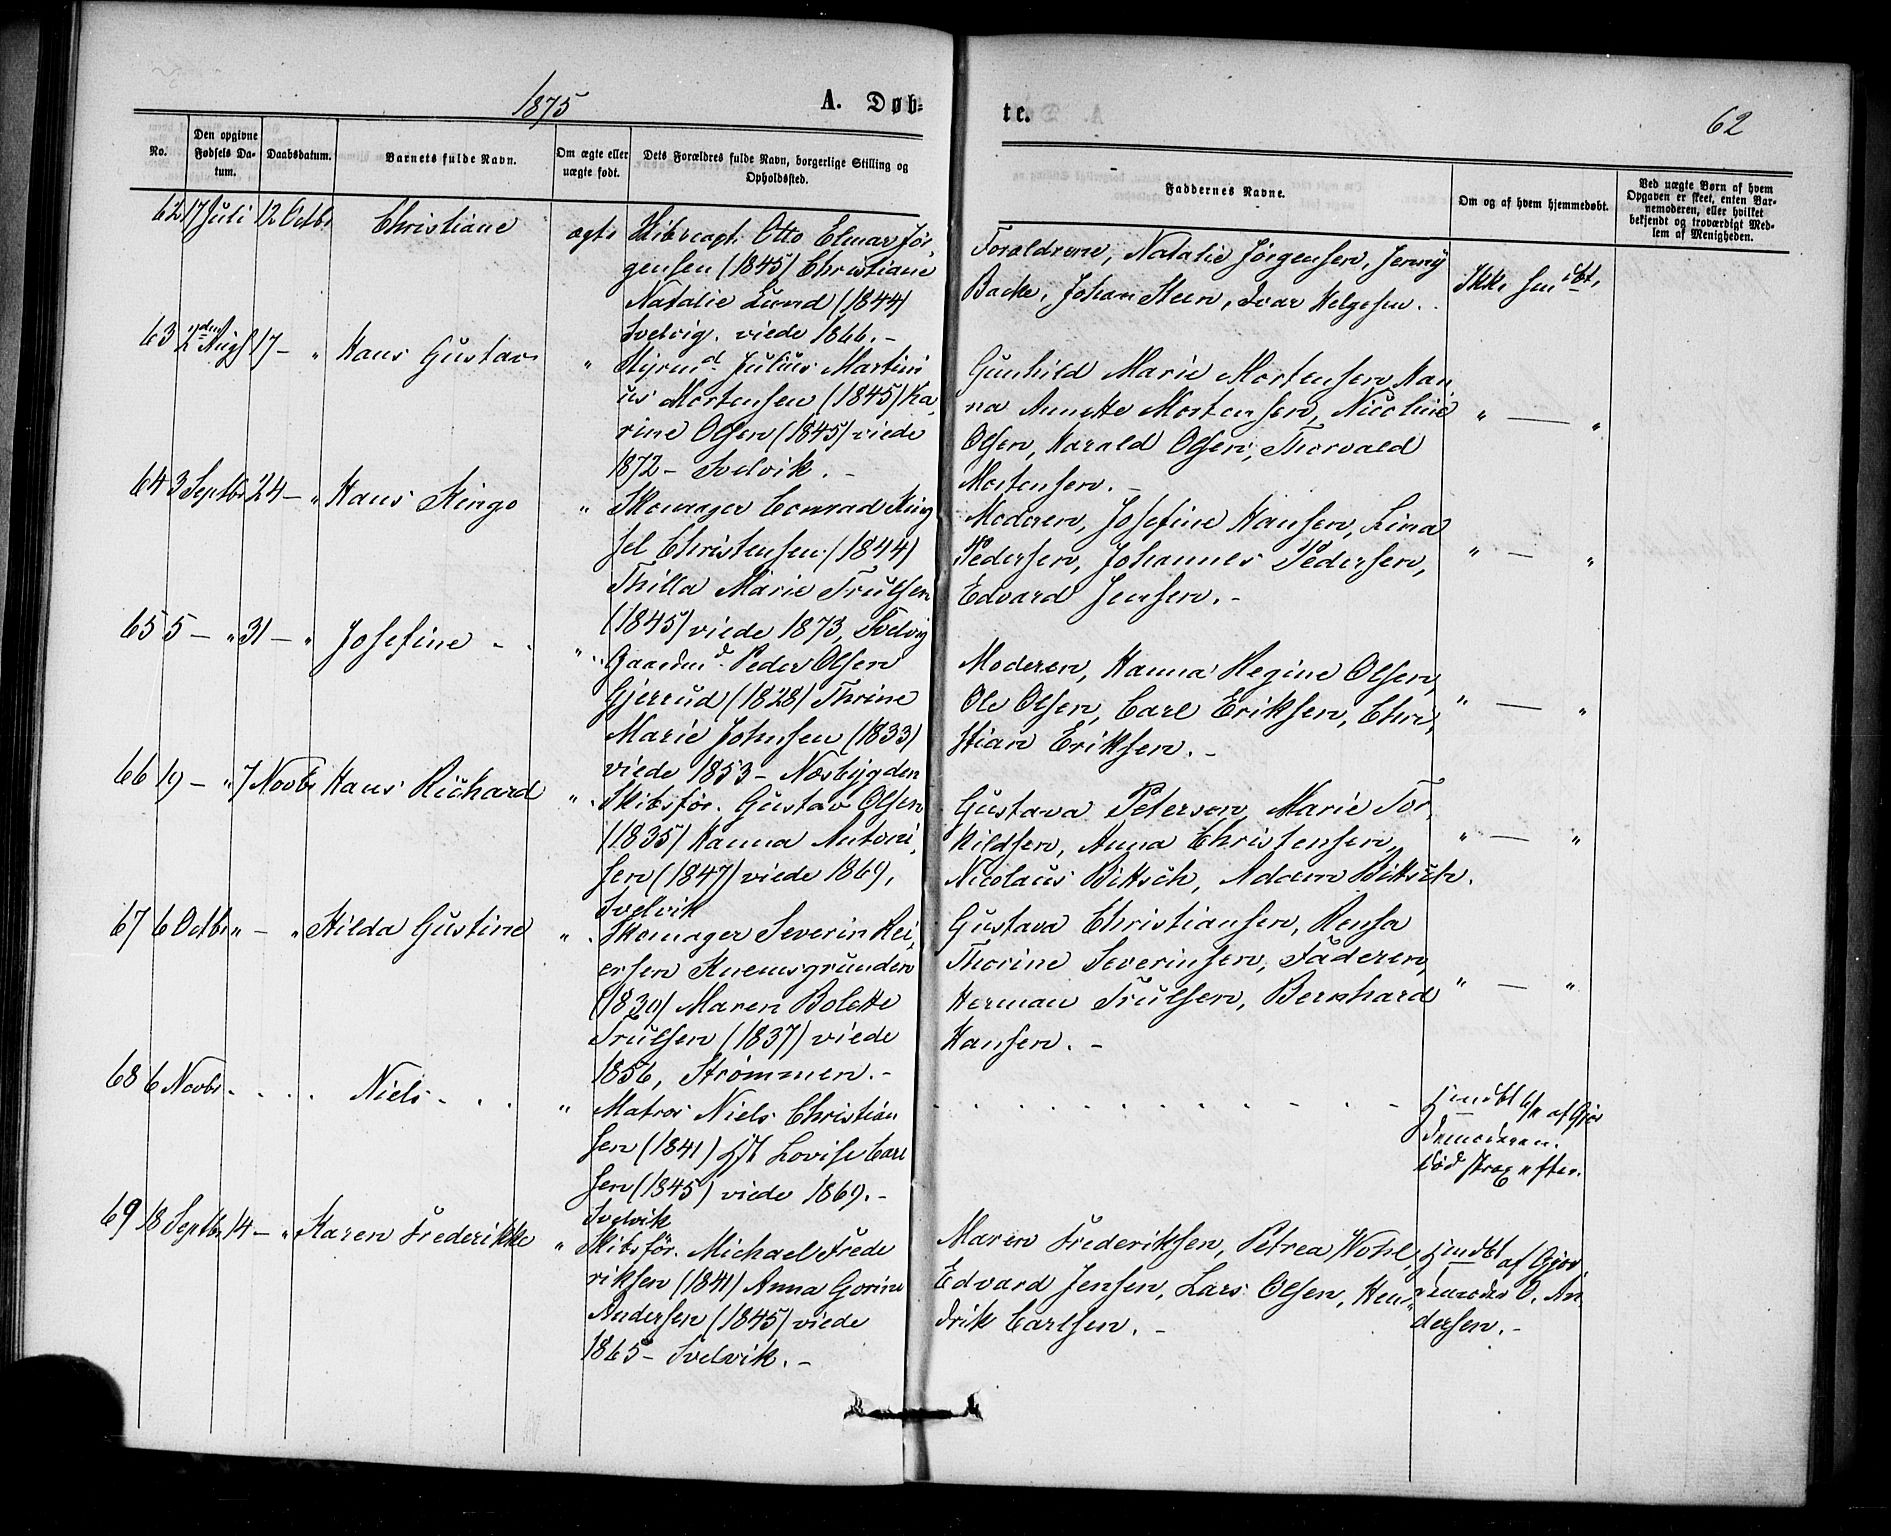 1875 A. Døb- te. 62
No. Den opgivne Fødsels Datum. Daabsdatum. Barnets fulde Navn. Om ægte eller uægte født. Dets Forældres fulde Navn, borgerlige Stilling og Opholdssted. Faddernes Navne. Om og af hvem hjemmedøbt. Ved uægte Børn af hvem Opgaven er skeet, enten Barnemoderen, eller hvilket bekjendt og troværdigt Medlem af Menigheden.
62 17 Juli 12 Octbr Christiane ægte Otto Elmar Jør
gensen (1845) Christiane
Natalie Lund (1844)
Svelvig. viede 1866. -
Forældrene, Natalie Jørgensen, Jenny
Backe, Johan Steen, Ivar Helgesen.
Ikke hmdbt.
63 2den Augs 17 - " Hans Gustav " Styrmd Julius Martini
us Mortensen (1845) Ka,
rine Olsen (1845) viede
1872 - Svelvik. -
Gunhild Marie Mortensen, Han
na Annette Mortensen, Nicoline
Olsen, Harald Olsen, Thorvald
Mortensen. -
" — "
64 3 Septbr 24 - " Hans Kingo " Skomager Conrad King
sel Christensen (1844)
Thilla Marie Trulsen
(1845) viede 1873, Svelvig
Moderen, Josefine Hansen, Lina
Pedersen, Johannes Pedersen,
Edvard Jensen. -
" — "
65 5 - " 31 - " Josefine - . " Gaardmd. Peder Olsen
Gjerrud (1828) Thrine
Marie Johnsen (1833)
viede 1853 - Nesbygden
Moderen, Hanna Regine Olsen,
Ole Olsen, Carl Eriksen, Chri,
stian Eriksen. -
" — "
66 19 - " 7 Novbr Hans Richard " Skibsfør. Gustav Olsen
(1835) Hanna Antoni,
sen (1847) viede 1869,
Svelvik
Gustava Peterson, Marie Tor,
kildsen, Anna Christensen,
Nicolaus Bittsch, Adam Bittsch.
" — "
67 6 Octbr " - " Hilda Gustine " Skomager Severin Rei,
ersen Knemsgrunden
(1830) Maren Bolette
Trulsen (1837) viede
1856, Strømmen. -
Gustava Christiansen, Rensa
Thorine Severinsen, Faderen,
Herman Trulsen, Bernhard
Hansen. -
" — "
68 6 Novbr . . . . Niels - . . " Matros Niels Christian
sen (1841) Lovise Carl
sen (1845) viede 1869. -
Svelvik
hjmdbt 6/11 af Gjor
demoderen.
død strax efter.
69 18 Septbr 14 - " Karen Frederikke " Skibsfør. Michael Frede
riksen (1841) Anna Gorine
Andersen (1845) viede
1865 - Svelvik. -
Maren Frederiksen, Petrea Wohl,
Edvard Jensen, Lars Olsen, Hen,
drik Carlsen. -
hjmdbt af Gjor
demoder O. An
dersen. -